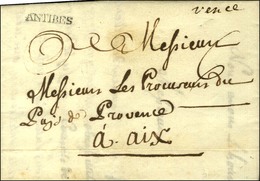 vence
ANTIBES
Messieurs
Messieurs Les Procureurs du
Pays de Provence
à aix